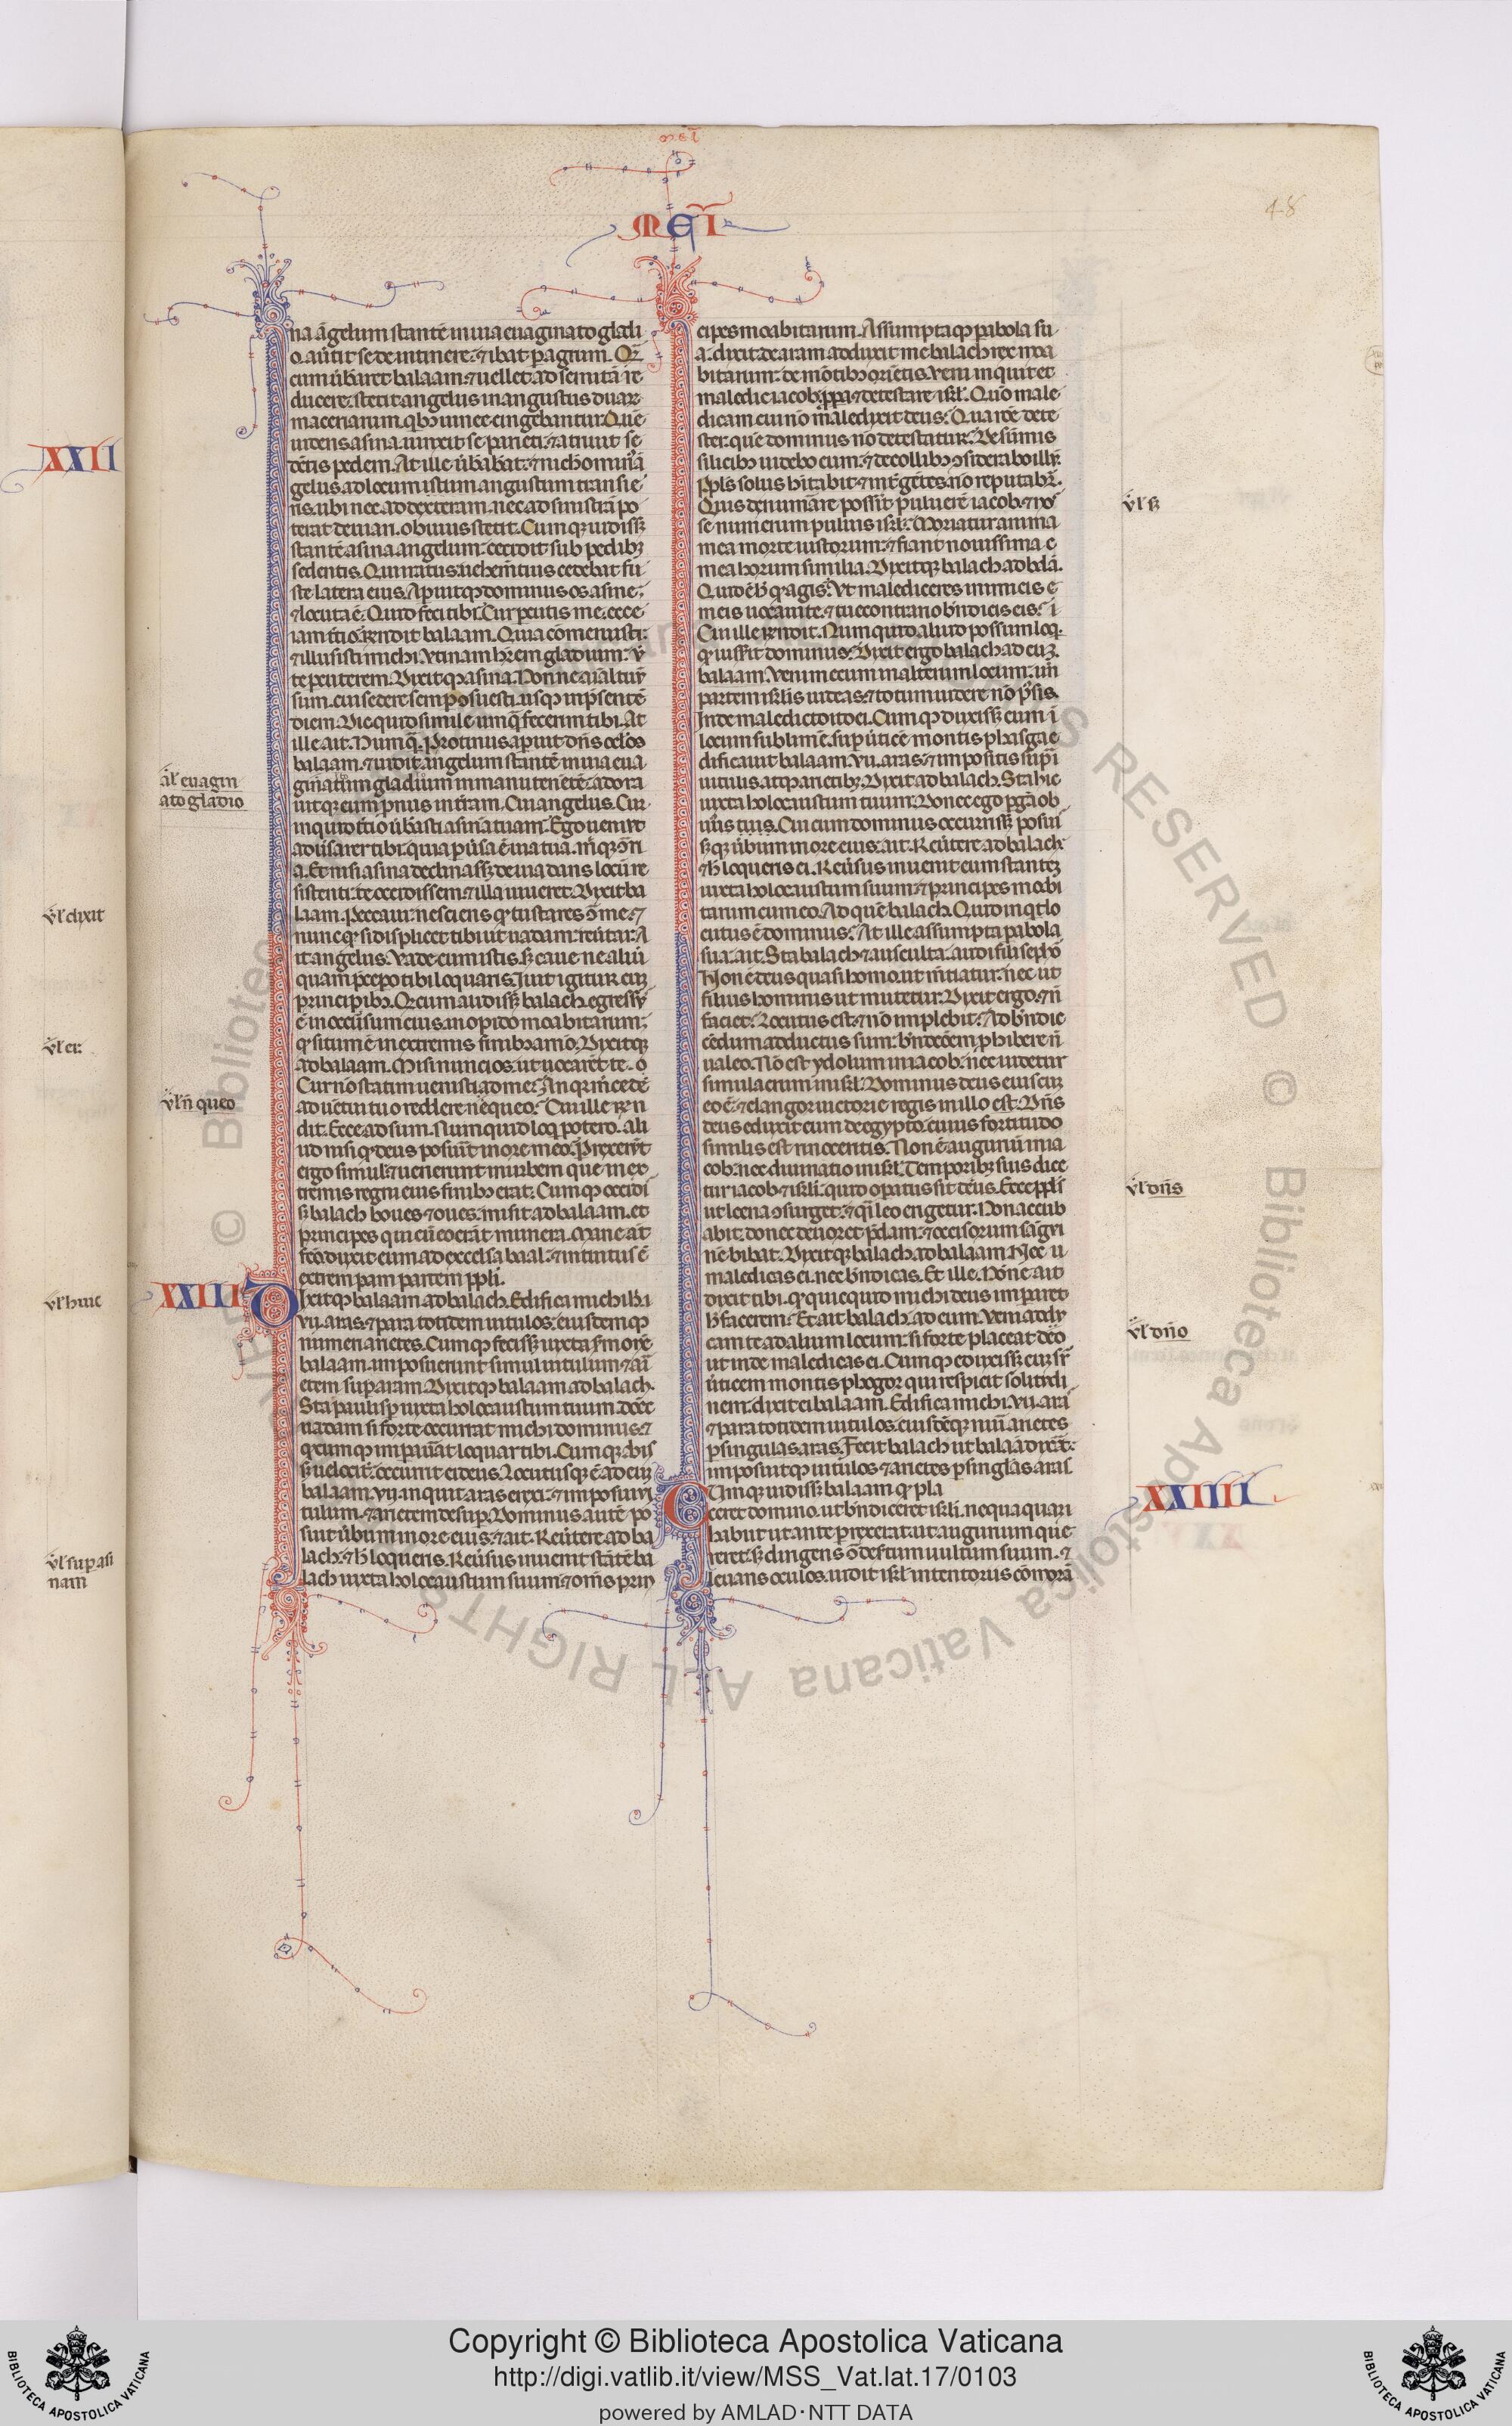 MEI
48
na ãgelum stantẽ in uia euaginato gladi
o. au̾tit se de itinere: ⁊ ibat p agrum. Q̃
cum ũbaret balaam: ⁊ uellet ad semitã re
ducere: stetit angelus in angustiis duaꝝ
maceriarum. qibꝫ uinee cingebantur. Quẽ
uidens asina. iunxit se parieti: ⁊ atriuit se
dẽtis pedem. At ille ũbabat: ⁊ nichomin̾ ã
gelus ad locum istum angustum transie
ns. ubi nec ad dexteram. nec ad sinistrã po
terat deuiari. obuius stetit. Cumqꝫ uidissꝫ
stantẽ asina angelum: cecidit sub pedibꝫ
sedentis. Qui iratus: uehem̃tius cedebat fu
ste latera eius. Apuitqꝫ dominus os asine:
⁊ locuta ẽ. Quid feci tibi. Cur pcutis me. ecce
iam t̃cio. R̃ndit balaam. Quia cõmeruisti:
⁊ illusisti michi. Vtinam hr̃em gladium: ut
te pcuterem. Dixitqꝫ asina. Nonne aĩal tuũ
sum. cui sedere semp ↄsueuisti. usqꝫ in p̃sentẽ
diem. Dic quid simile unq̃ fecerim tibi. At
ille ait. Numq̃. Protinus apuit dñs oc̃los
balaam. ⁊ uidit angelum stãtẽ in uia eua
ginatum gladium in manu tenẽtẽ: adora
uitqꝫ eum pnus in t̃ram. Cui angelus. Cur
inquid t̃cio ũbasti asinã tuam. Ego ueni ut
adũsarer tibi. quia pũsa ẽ uia tua. m̃qꝫ ↄ̃ri
a. Et nisi asina declinassꝫ de uia dans locũ re
sistenti: te occidissem: ⁊ illa uiueret. Dixit ba
laam. Peccaui: nesciens qꝫ tu stares ↄ̃ me: ⁊
nunc qꝫ si displicet tibi ut uadam: reũtar. A
it angelus. Vade cum istis. sꝫ caue ne aliud
quam p̃cepo tibi loquaris. Iuit igitur cum
principibꝫ. Q̃ cum audissꝫ balach. egressꝰ
ẽ in occursum eius. in opido moabitarum:
qꝫ situm ẽ in extremis finibꝫ arnõ. Dixitqꝫ
ad balaam. Misi nuncios. ut uocarẽt te. ꝙ
Cur nõ statim uenisti ad me. An qꝫ m̃cedẽ
aduẽtui tuo reddere nequeo. Cui ille R̃n
dit. Ecce adsum. Numquid loqi potero. ali
ud nisi qꝫ deus posuit in ore meo. Prexer̃t
ergo simul: ⁊ uenerunt in urbem que in ex
tremis regni eius finibꝫ erat. Cumqꝫ occidi
sꝫ balach boues ⁊ oues. misit ad balaam. et
principes qui cũ eo erãt munera. Mane aũt
fc̃o duxit eum ad excelsa baal: ⁊ intuitus ẽ
extremam partem ppli.
Dixitqꝫ balaam ad balach. Edifica michi hic
vij. aras. ⁊ para totidem uitulos. eiusdemqꝫ
numeri arietes. Cumqꝫ fecissꝫ iuxta s̃monẽ
balaam. imposuerunt simul uitulum ⁊ ari
etem sup aram. Dixitqꝫ balaam ad balach.
Sta paulisp iuxta holocaustum tuum donec
uadam si forte occurrat michi dominus. ⁊
qꝫcumqꝫ impauit loquar tibi. Cumqꝫ abis
sꝫ uelocit̃. occurrit ei deus. Locutusqꝫ ẽ ad eũ
balaam. vij. inquit aras erexi: ⁊ imposui ui
tulum. ⁊ arietem desup. Dominus autẽ po
suit ũbum in ore eius. ⁊ ait. Reũtere ad ba
lach: ⁊ h̾ loqueris. Reũsus inuenit stãtẽ ba
lach iuxta holocaustum suum: ⁊ oms prin
cipes moabitarum. Assumptaqꝫ pabola su
a. dixit. de aram adduxit me balach rex moa
bitarum: de mõtibꝫ orientis. Veni inquit et
maledic iacob: ppa ⁊ detestare isrl. Quõ male
dicam cui nõ maledixit deus: Qua rõe dete
ster. quẽ dominus nõ detestatur. De sũmis
silicibꝫ uidebo eum: ⁊ de collibꝫ ↄsiderabo illũ.
Ppls solus h̾itabit: ⁊ int̃ gẽtes nõ reputabit̃.
Quis denumãre possit puluerẽ iacob. ⁊ nos
se numerum pulũis isrl. Moriatur anima
mea morte iustorum: ⁊ fiant nouissima m
ea horum similia. Dixitqꝫ balach ad balã.
Quid ẽ h̾ qꝫ agis. Vt malediceres inimicis m
eis uocaui te. ⁊ tu econtrario bñdicis eis.
Cui ille R̃ndit. Num quid aliud possum loqi.
qꝫ iusserit dominus. Dixit ergo balach ad eũ.
balaam. Veni mecum in alterum locum: uñ
partem isrlis uideas. ⁊ totum uidere nõ possis.
Inde maledicito ei. Cumqꝫ duxissꝫ eum i
locum sublimẽ. sup ũticẽ montis phasge e
dificauit balaam. vij. aras. ⁊ impositis supi
uitulis. atqꝫ arietibꝫ. Dixit ad balach. Sta hic
iuxta holocaustum tuum: Donec ego pgã ob
uius tuus. Cui cum dominus occurrissꝫ posui
sꝫqꝫ ũbum in ore eius. ait. Reũtere ad balach:
⁊ h̾ loqueris ei. Reũsus inuenit eum stantẽ
iuxta holocaustum suum: ⁊ principes moabi
tarum cum eo. Ad quẽ balach. Quid inqꝫt lo
cutus ẽ dominus. At ille assumpta pabola
sua. ait. Sta balach ⁊ ausculta: audi fili sephor
Non ẽ deus quasi homo. ut m̃tiatur: nec ut
filius hominis ut mutetur. Dixit ergo. ⁊ ñ
faciet: Locutus est. ⁊ nõ implebit. Ad bñdic
cẽdum adductus sum: bñdcõem phibere ñ
ualeo. Nõ est ydolum in iacob. nec uidetur
simulacrum in isrl. Dominus deus eius cũ
eo ẽ. ⁊ clangor uictorie regis in illo est. Dñs
deus eduxit eum de egypto. cuius fortitudo
similis est rinocerotis. Non ẽ auguriũ in ia
cob. nec diuinatio in isrl. Temporibꝫ suis dice
tur iacob ⁊ isrli. quid opatus sit deus. Ecce ppls
ut leena ↄsurget. ⁊ qĩ leo erigetur. Non accub
abit. donec deuoret p̃dam: ⁊ occisorum sãgui
nẽ bibat. Dixitqꝫ balach ad balaam. Nec
maledicas ei. nec bñdicas. Et ille. Nõne ait
dixi tibi. qꝫ quicquid michi deus imparet
h̾ facerem. Et ait balach ad eum. Veni ⁊ adu
cam te ad alium locum: si forte placeat deo
ut inde maledicas ei. Cumqꝫ eduxissꝫ eũ sup
ũticem montis phogor qui respicit solitudi
nem. dixit ei balaam. Edifica michi. vij. aras
⁊ para totidem uitulos. eiusdẽqꝫ nũi arietes
p singulas aras. Fecit balach ut balaã dixat:
imposuitqꝫ uitulos ⁊ arietes p singlas aras
Cumqꝫ uidissꝫ balaam qꝫ pla
ceret domino. ut bñdiceret isrli. nequaquam
habiit ut ante prexerat: ut augurium que
reret: sꝫ dirigens ↄ̃ desertum uultum suum. ⁊
leuans oculos. uidit isrl in tentoriis cõmorã
XXII
ul dixit
ul ei
ul huic
ul sup asi
nam
al euagin
ato gladio
ul ñ queo
XXIII
ul sꝫ
ul dñs
ul dño
XXIIII
Copyright © Biblioteca Apostolica Vaticana
http://digi.vatlib.it/view/MSS_Vat.lat.17/0103
powered by AMLAD·NTT DATA
BIBLIOTECA APOSTOLICA VATICANA
BIBLIOTECA APOSTOLICA VATICANA
© Biblioteca Apostolica Vaticana ALL RIGHTS RESERVED